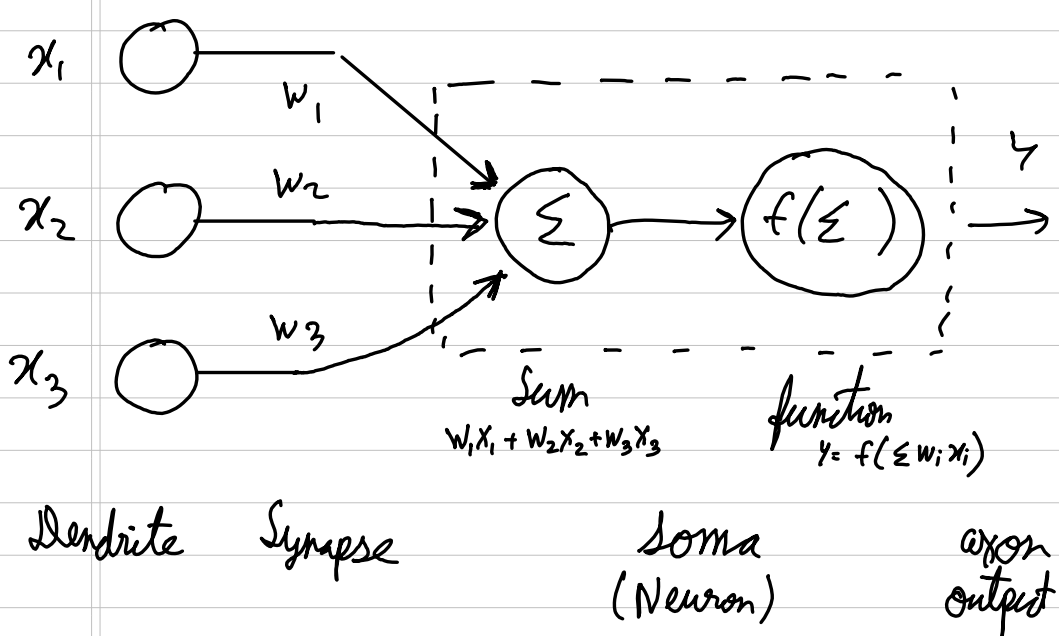 x₁
w₁
x₂
w₂
Σ
f(Σ )
y
x₃
w₃
Sum
w₁x₁ + w₂x₂ + w₃x₃
function
y = f(Σ wᵢ xᵢ)
Dendrite
Synapse
Soma
(Neuron)
axon
output